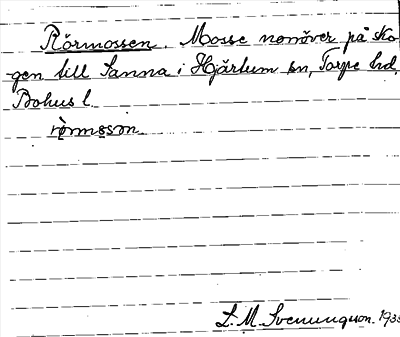 Rörmossen. Mosse norröver på sko-
gen till Sanna i Hjärtum sn, Torpe hd,
Bohus l.
rö̀rmo̱sən
L. M. Svenungson. 193